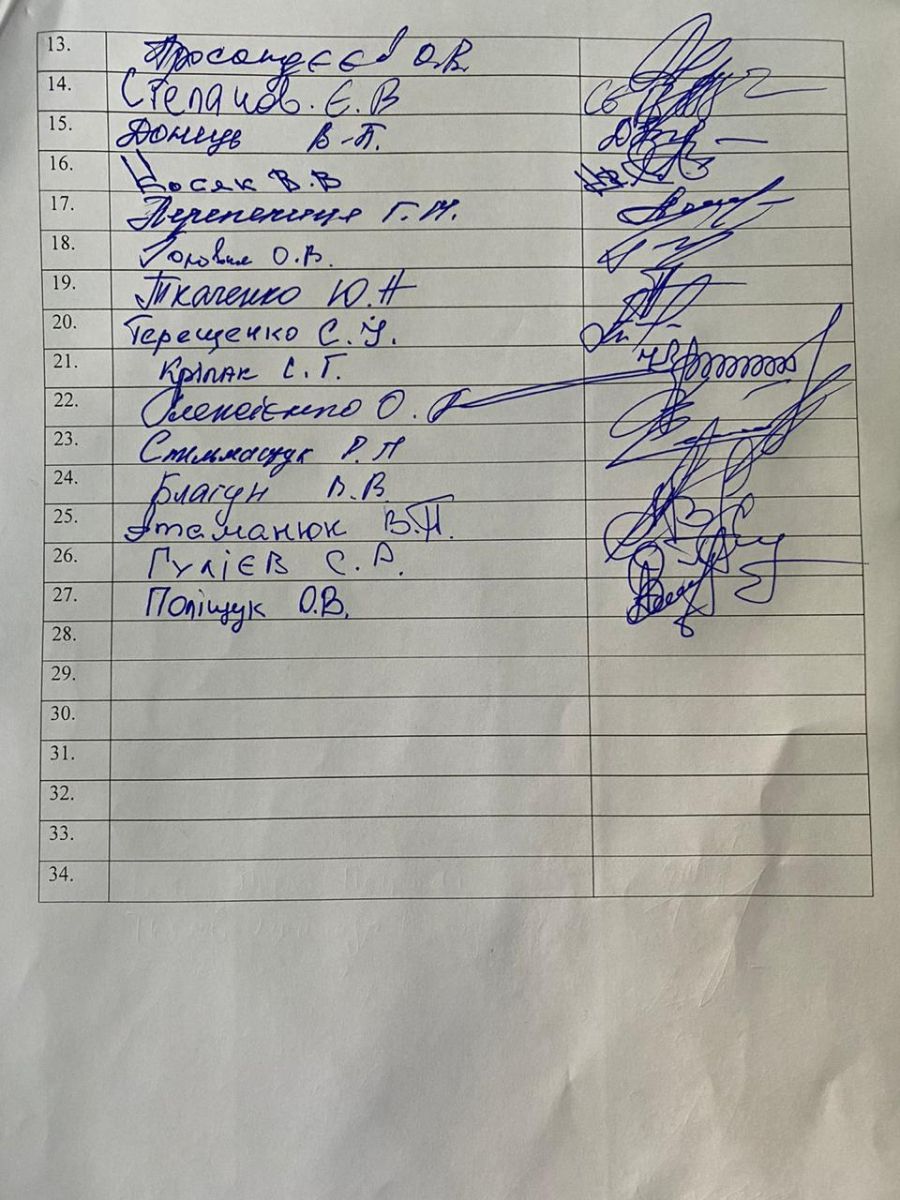 13. Просандєєв О.В.
14. Степанов. Є. В
15. Донець В-П.
16. Носяк В.В
17. Перепелиця Г.М.
18. Головня О.В.
19. Ткаченко Ю.Н
20. Терещенко С.У.
21. Кріпак С.Г.
22. О.
23. Р.П
24. Благун В.В.
25. Атаманюк В.П.
26. Гулієв С.А.
27. Поліщук О.В.
28.
29.
30.
31.
32.
33.
34.